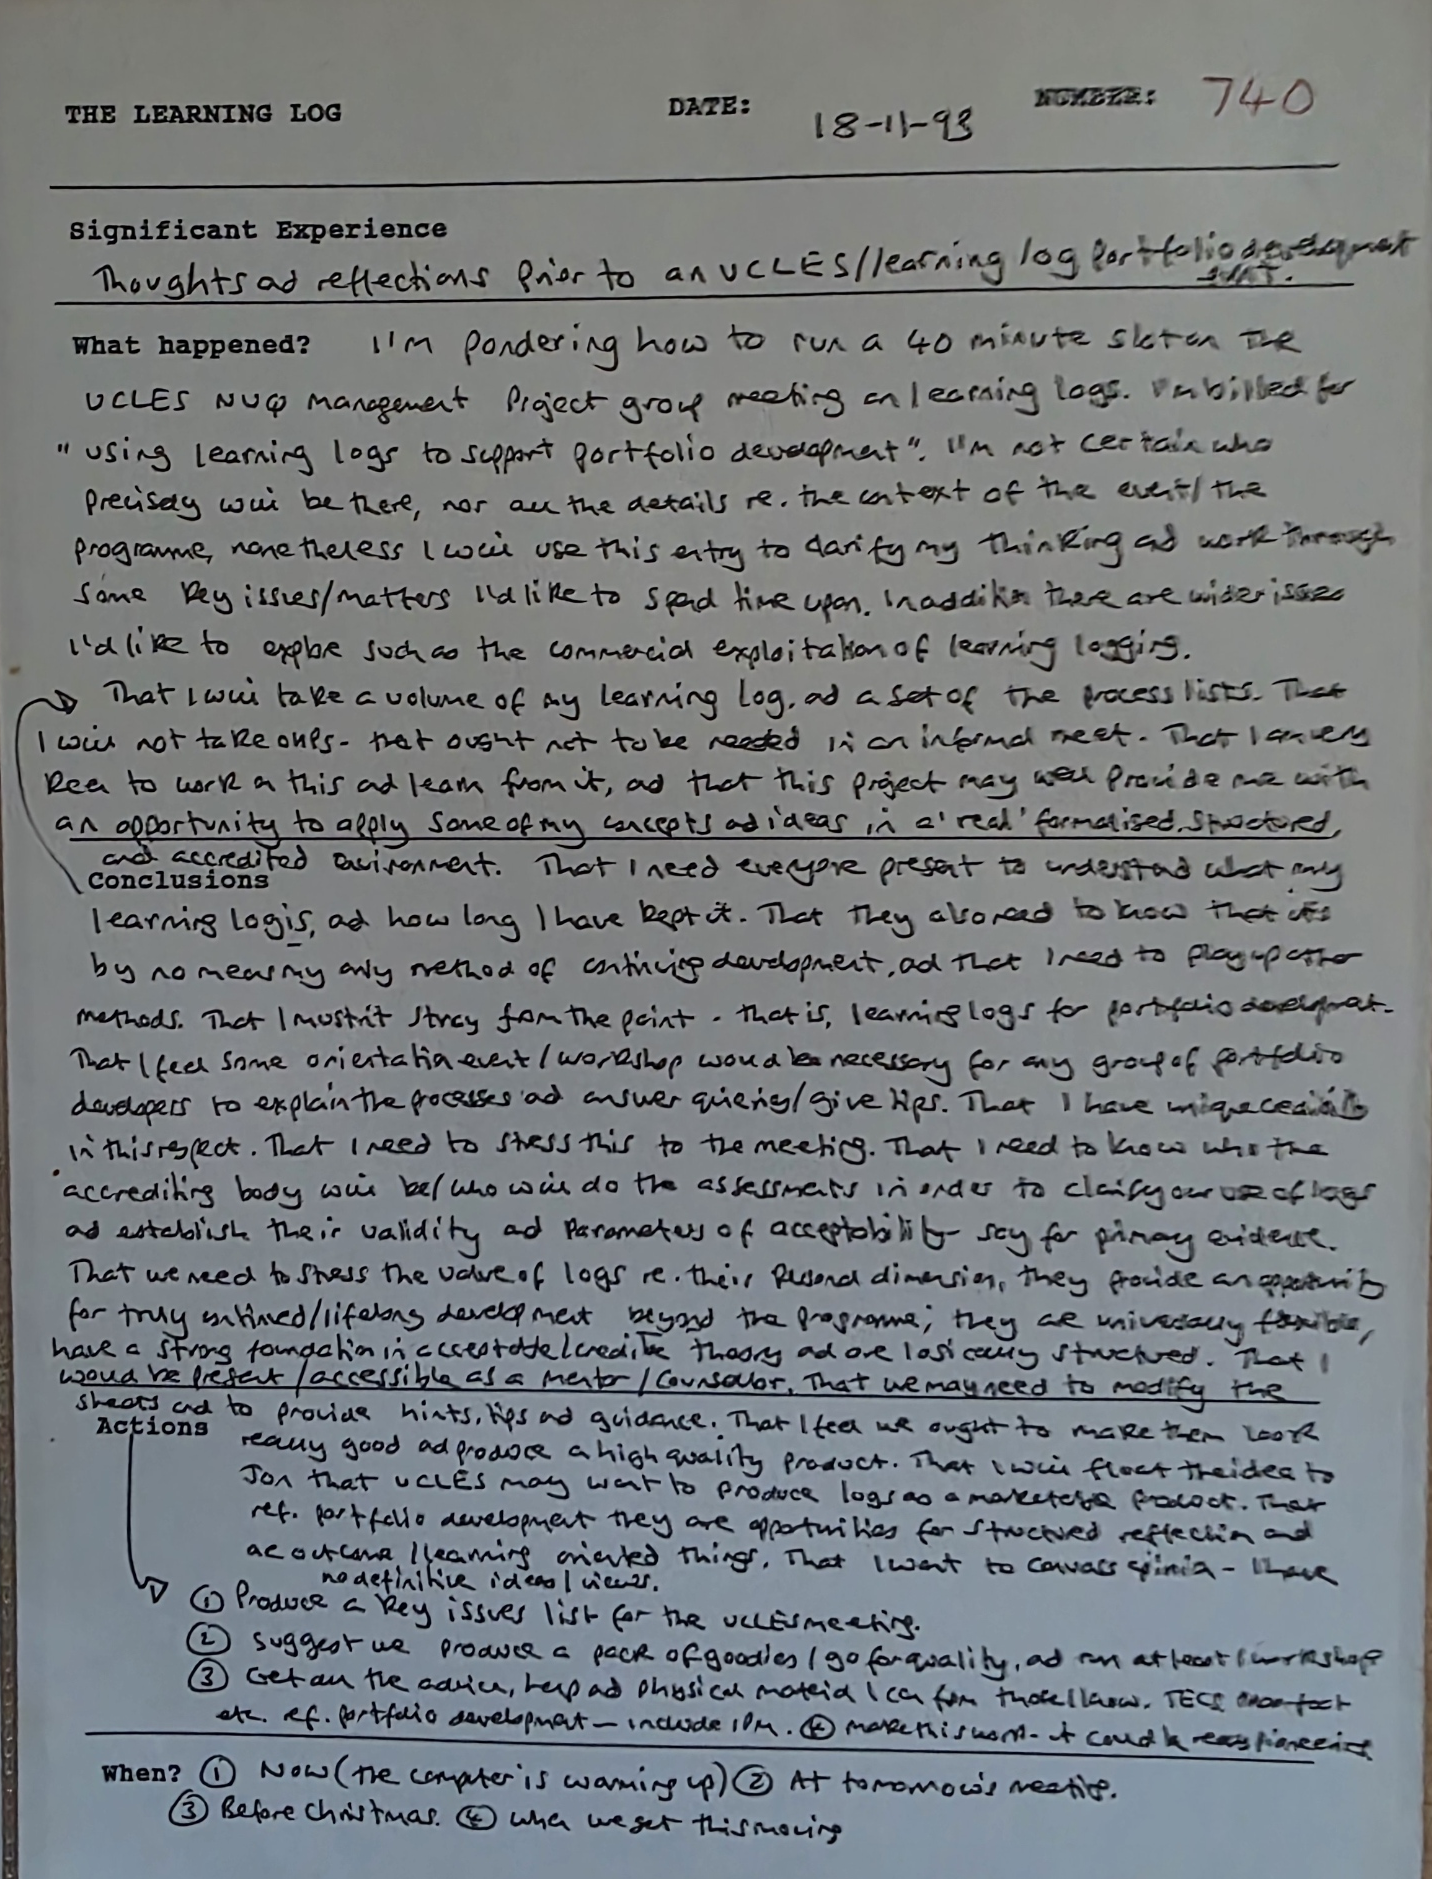 THE LEARNING LOG DATE: 18-11-93 NUMBER: 740
Significant Experience
Thoughts ad reflections prior to an UCLES/learning log portfolio development
What happened? I'm pondering how to run a 40 minute slot on the
UCLES NVQ Management Project group meeting on learning logs. I'm billed for
"using learning logs to support portfolio development". I'm not certain who
precisely will be there, nor all the details re. the context of the event/the
programme, nonetheless I will use this entry to clarify my thinking ad work through
some key issues/matters I'd like to spend time upon. In addition there are wider issues
I'd like to explore such as the commercial exploitation of learning logging.
That I will take a volume of my learning log, ad a set of the process lists. That
I will not take OHPs - that ought not to be needed in an informal meet. That I am very
keen to work on this ad learn from it, ad that this project may well provide me with
an opportunity to apply some of my concepts ad ideas in a 'real' formalised, structured,
and accredited environment. That I need everyone present to understand what my
Conclusions
learning log is, ad how long I have kept it. That they also need to know that it's
by no means my only method of continuing development, ad that I need to play up other
methods. That I mustn't stray from the point - that is, learning logs for portfolio development.
That I feel some orientation event/workshop would be necessary for any group of portfolio
developers to explain the processes ad answer queries/give tips. That I have unique
in this respect. That I need to stress this to the meeting. That I need to know who the
accrediting body will be/who will do the assessments in order to clarify our use of logs
ad establish their validity ad parameters of acceptability - say for primary evidence.
That we need to stress the value of logs re. their personal dimension, they provide an opportunity
for truly continued/lifelong development beyond the programme; they are universally flexible,
have a strong foundation in acceptable/credible theory ad are logically structured. That I
would be present/accessible as a mentor/counsellor. That we may need to modify the
sheets and to provide hints, tips ad guidance. That I feel we ought to make them look
Actions
really good ad produce a high quality product. That I will float the idea to
Jon that UCLES may want to produce logs as a marketable product. That
ref. portfolio development they are opportunities for structured reflection and
are outcome/learning oriented things. That I want to canvass opinion - I have
no definitive ideas/views.
① Produce a key issues list for the UCLES meeting.
② Suggest we produce a pack of goodies/go for quality, ad run at least 1 workshop
③ Get all the advice, help ad physical material I can from those I know. TECs
etc. ref. portfolio development - include IPM. ④ Make this work - it could be really pioneering
When? ① Now (the computer is warming up) ② At tomorrow's meeting.
③ Before Christmas. ④ When we get this moving